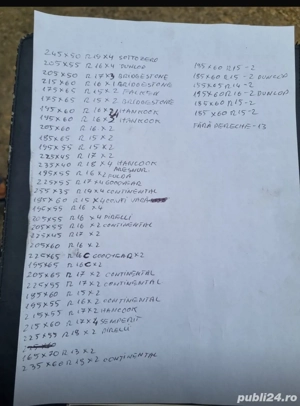 245x50 R18x4 SOTTOZERO
205x55 R16x4 DUNLOP
205x50 R17x3 BRIDGESTONE
215x60 R16x2 BRIDGESTONE
175x65 R15x2
175x65 R15x2 BRIDGESTONE
195x60 R16x2 HANCOOK
195x60 R16x HANCOOK
205x60 R16x2
185x65 R15x2
195x55 R15x2
225x45 R17x2
235x40 R18x4 HANCOOK
195x55 R16x2
225x55 R17x4 GOODYEAR
255x35 R19x4 CONTINENTAL
185x60 R15x4
195x55 R16x4
205x55 R16x4 PIRELLI
205x55 R16x2 CONTINENTAL
225x45 R17x2
205x60 R16x2
225x65 R16C GOODYEARx2
195x65 R16Cx2
205x65 R17x2 CONTINENTAL
225x55 R17x2 CONTINENTAL
185x60 R15x2
195x55 R16x2 CONTINENTAL
215x55 R17x2 HANCOOK
215x60 R17x4 SEMPERIT
225x55 R18x2 PIRELLI
165x70 R13x2
235x60 R18x2 CONTINENTAL
195x60 R15-2
185x60 R15-2 DUNLOP
185x60 R15-2
185x60 R15-2
FARA PERECHE-13
publi24.ro